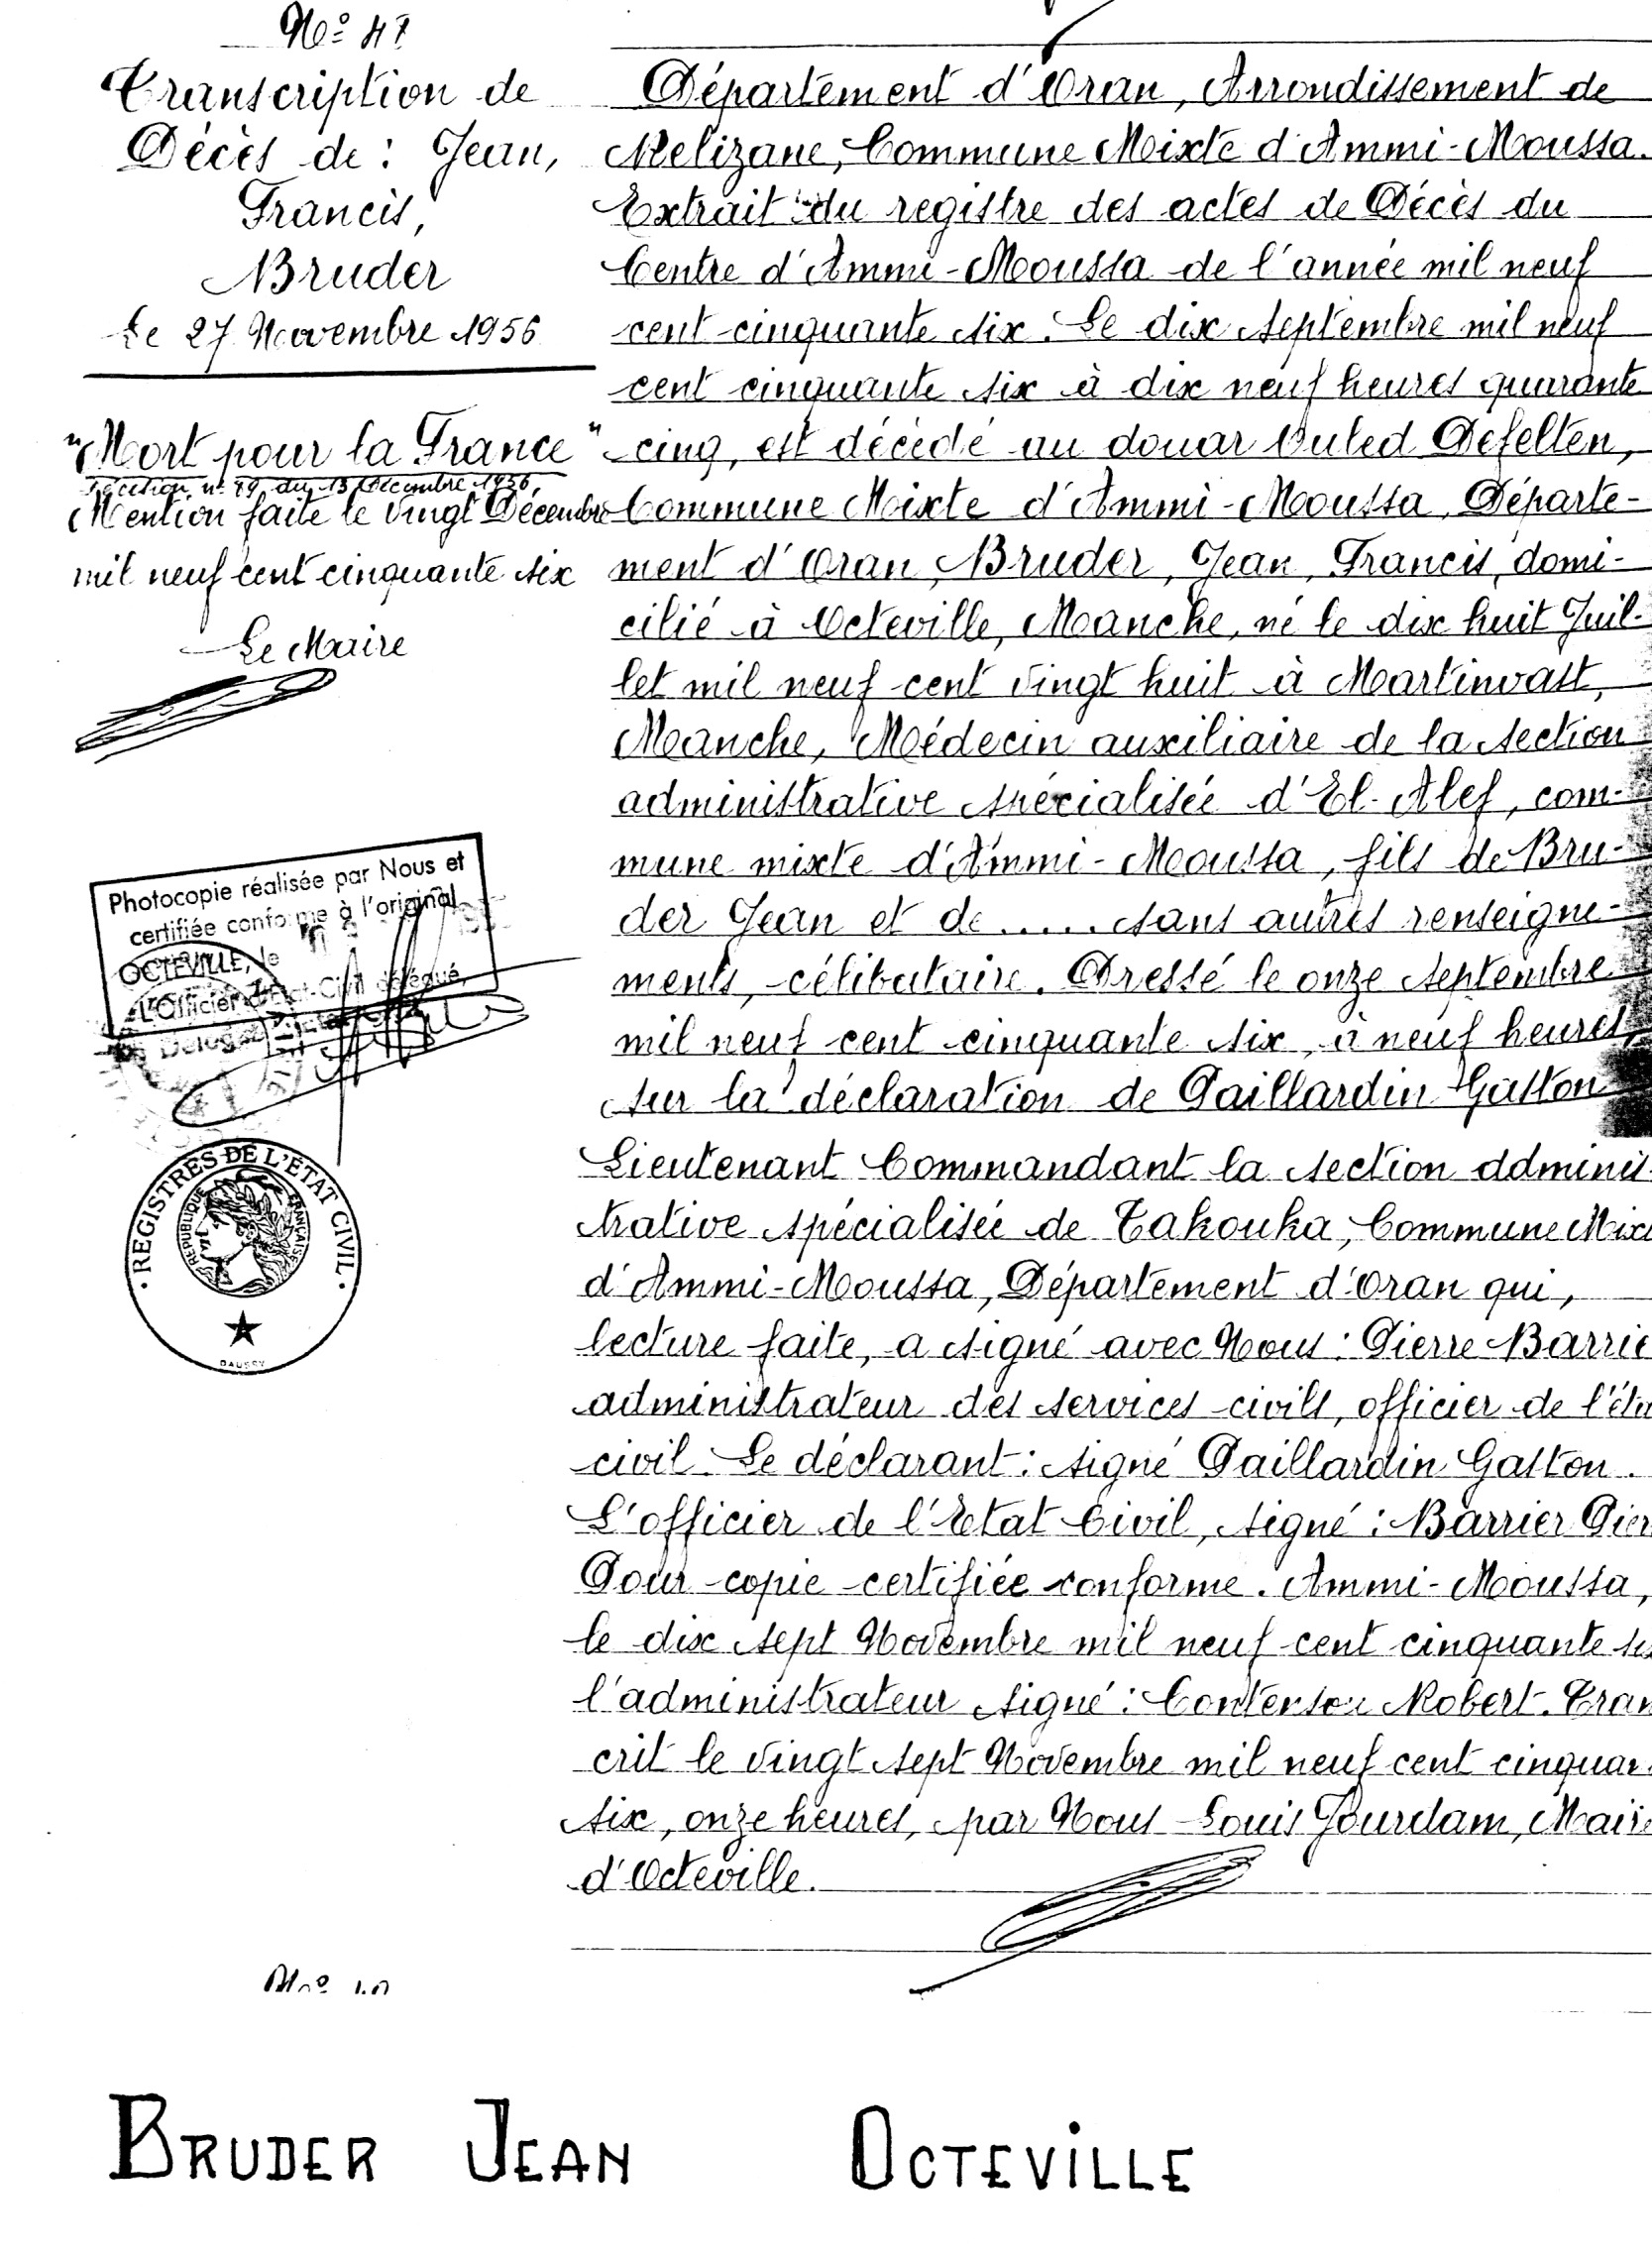 N° 47
Transcription de
Décès de : Jean,
Francis,
Bruder
Le 27 Novembre 1956
"Mort pour la France"
du 13 Décembre 1956
Mention faite le vingt Décembre
mil neuf cent cinquante six
Le Maire
Photocopie réalisée par Nous et
certifiée conforme à l'original
OCTEVILLE, le
L'Officier d'Etat-Civil délégué,
REGISTRES DE L'ÉTAT CIVIL
REPUBLIQUE FRANÇAISE
Département d'Oran, Arrondissement de
Relizane, Commune Mixte d'Ammi-Moussa.
Extrait du registre des actes de Décès du
Centre d'Ammi-Moussa de l'année mil neuf
cent cinquante six. Le dix septembre mil neuf
cent cinquante six à dix neuf heures quarante
cinq, est décédé au douar Ouled Defelten,
Commune Mixte d'Ammi-Moussa, Départe-
ment d'Oran, Bruder, Jean, Francis, domi-
cilié à Octeville, Manche, né le dix huit Juil-
let mil neuf cent vingt huit à Martinvast,
Manche, Médecin auxiliaire de la section
administrative spécialisée d'El-Alef, com-
mune mixte d'Ammi-Moussa, fils de Bru-
der Jean et de ..... sans autres renseigne-
ments, célibataire. Dressé le onze septembre
mil neuf cent cinquante six, à neuf heures,
sur la déclaration de Paillardin Gaston
Lieutenant Commandant la section adminis-
trative spécialisée de Takouka, Commune Mix
d'Ammi-Moussa, Département d'Oran qui,
lecture faite, a signé avec Nous : Pierre Barrie
administrateur des services civils, officier de l'éta
civil. Le déclarant : signé Paillardin Gaston.
L'officier de l'Etat Civil, signé : Barrier Pier
Pour copie certifiée conforme. Ammi-Moussa,
le dix sept Novembre mil neuf cent cinquante si
l'administrateur signé : Robert. Tran
crit le vingt sept Novembre mil neuf cent cinquan
six, onze heures, par Nous Louis Jourdam, Maire
d'Octeville.
BRUDER JEAN OCTEVILLE